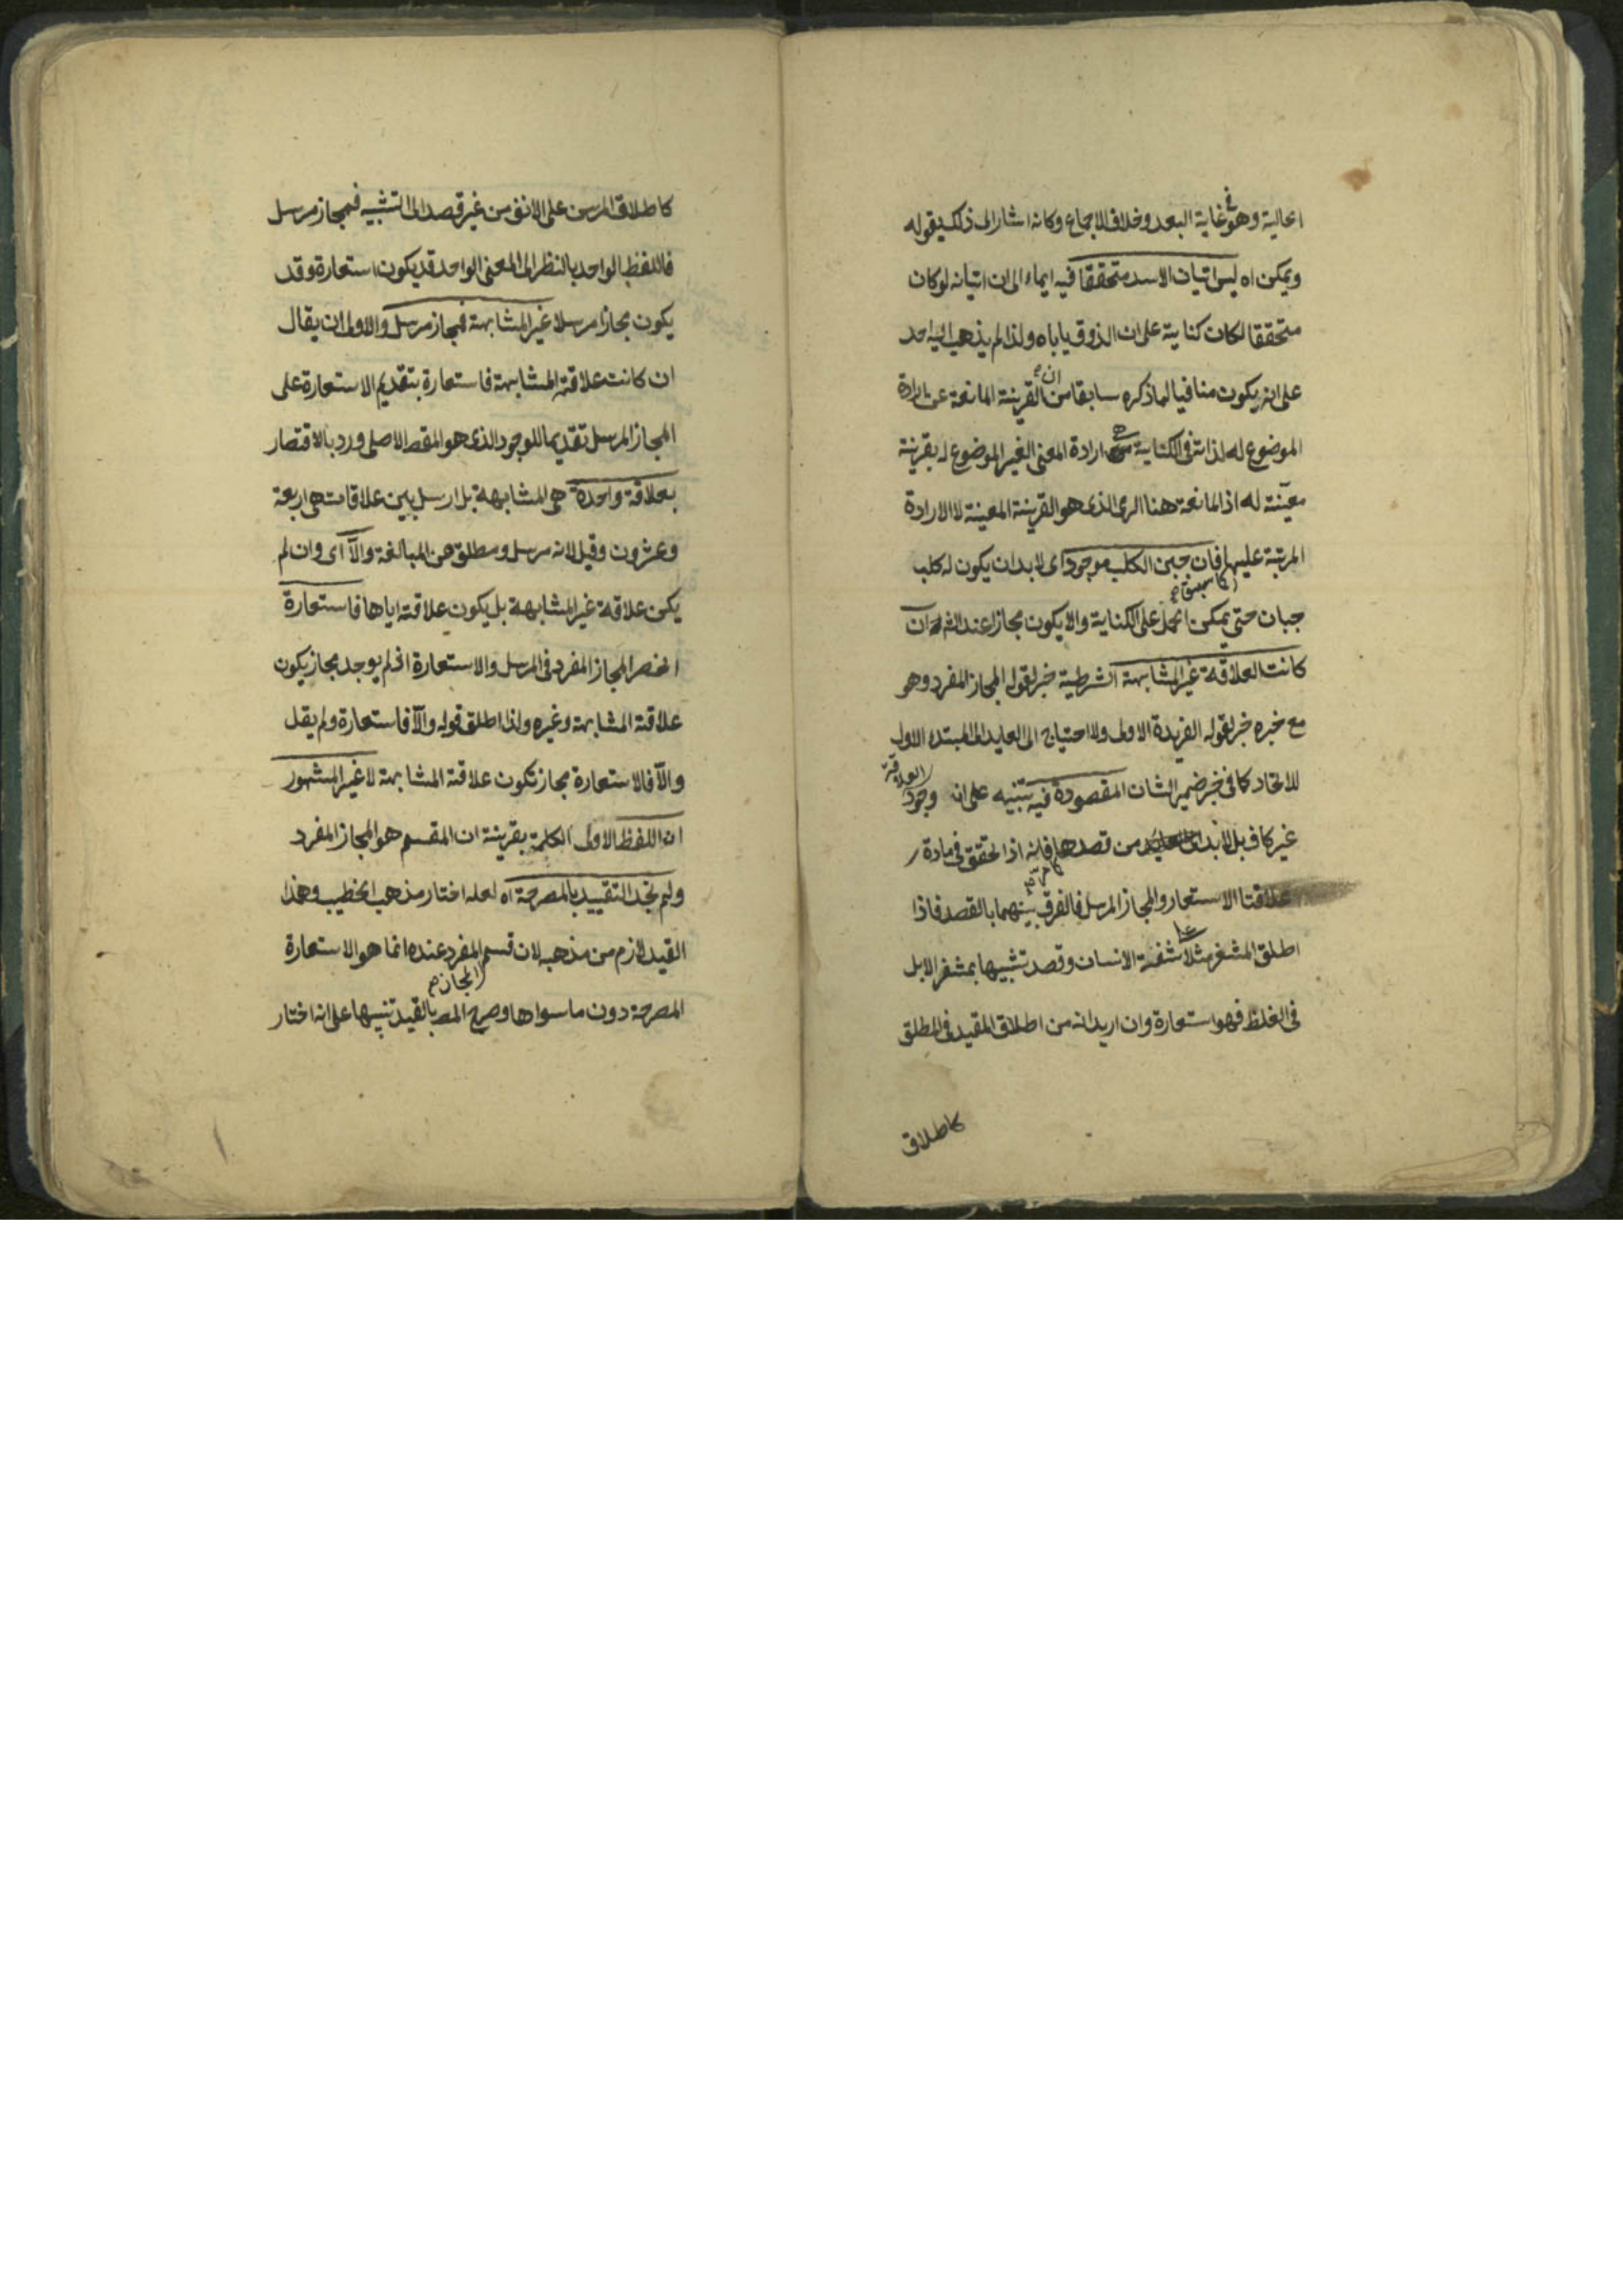 الحالية وهو في غاية البعد وخلاف الاجماع وكانه اشار الى ذلك بقوله
ويمكن اه ليس اتيان الاسد متحققا فيه ايماء الى ان اتيانه لو كان
متحققا لكان كناية على ان الذوق ياباه ولذا لم يذهب اليه احد
على انه يكون منافيا لما ذكره سابقا من ان القرينة المانعة عن ارادة
الموضوع له لذاته في الكناية ارادة المعنى الغير الموضوع له بقرينة
معينة له اذ المانعة هنا الرمى الذى هو القرينة المعينة لا الارادة
المرتبة عليها فان جبن الكلب موجود اى لابد ان يكون له كلب
جبان حتى يمكن الحمل على الكناية والا يكون مجازا عند الش كما سبق ان
كانت العلاقة غير المشابهة الشرطية خبر لقوله المجاز المفرد وهو
مع خبره خبر لقوله الفريدة الاولى ولا احتياج الى العايد الى المبتدء الاول
للاتحاد كما في خبر ضمير الشان المقصودة فيه تنبيه على ان وجود العلاقة
غير كاف بل لابد من قصدها فانه اذا تحقق في مادة
علاقتا الاستعار والمجاز المرسل فالفرق بينهما بالقصد فاذا
اطلق المشفر مثلا على شفة الانسان وقصد تشبيهها بمشفر الابل
في الغلظ فهو استعارة وان اريد انه من اطلاق المقيد في المطلق
كاطلاق
كاطلاق المرسن على الانف من غير قصد الى التشبيه فمجاز مرسل
فاللفظ الواحد بالنظر الى المعنى الواحد قد يكون استعارة وقد
يكون مجازا مرسلا غير المشابهة فمجاز مرسل والاولى ان يقال
ان كانت علاقته المشابهة فاستعارة بتقديم الاستعارة على
المجاز المرسل تقديما للوجود الذى هو المقص الاصلى ورد بالاقتصار
بعلاقة واحدة هى المشابهة بل ارسل بين علاقات هى اربعة
وعشرون وقيل لانه مرسل ومطلق عن المبالغة والا اى وان لم
يكن علاقة غير المشابهة بل يكون علاقته اياها فاستعارة
انحصر المجاز المفرد في المرسل والاستعارة اذ لم يوجد مجاز يكون
علاقته المشابهة وغيره ولذا اطلق قوله والا فاستعارة ولم يقل
والا فالاستعارة مجاز تكون علاقته المشابهة لا غير المشهور
ان اللفظ الاول الكلمة بقرينة ان المقسم هو المجاز المفرد
ولم نجد التقييد بالمصرحة اه لعله اختار مذهب الخطيب وهذا
القيد لازم من مذهبه لان قسم المجاز المفرد عنده انما هو الاستعارة
المصرحة دون ما سواها وصرح المص بالقيد تنبيها على انه اختار